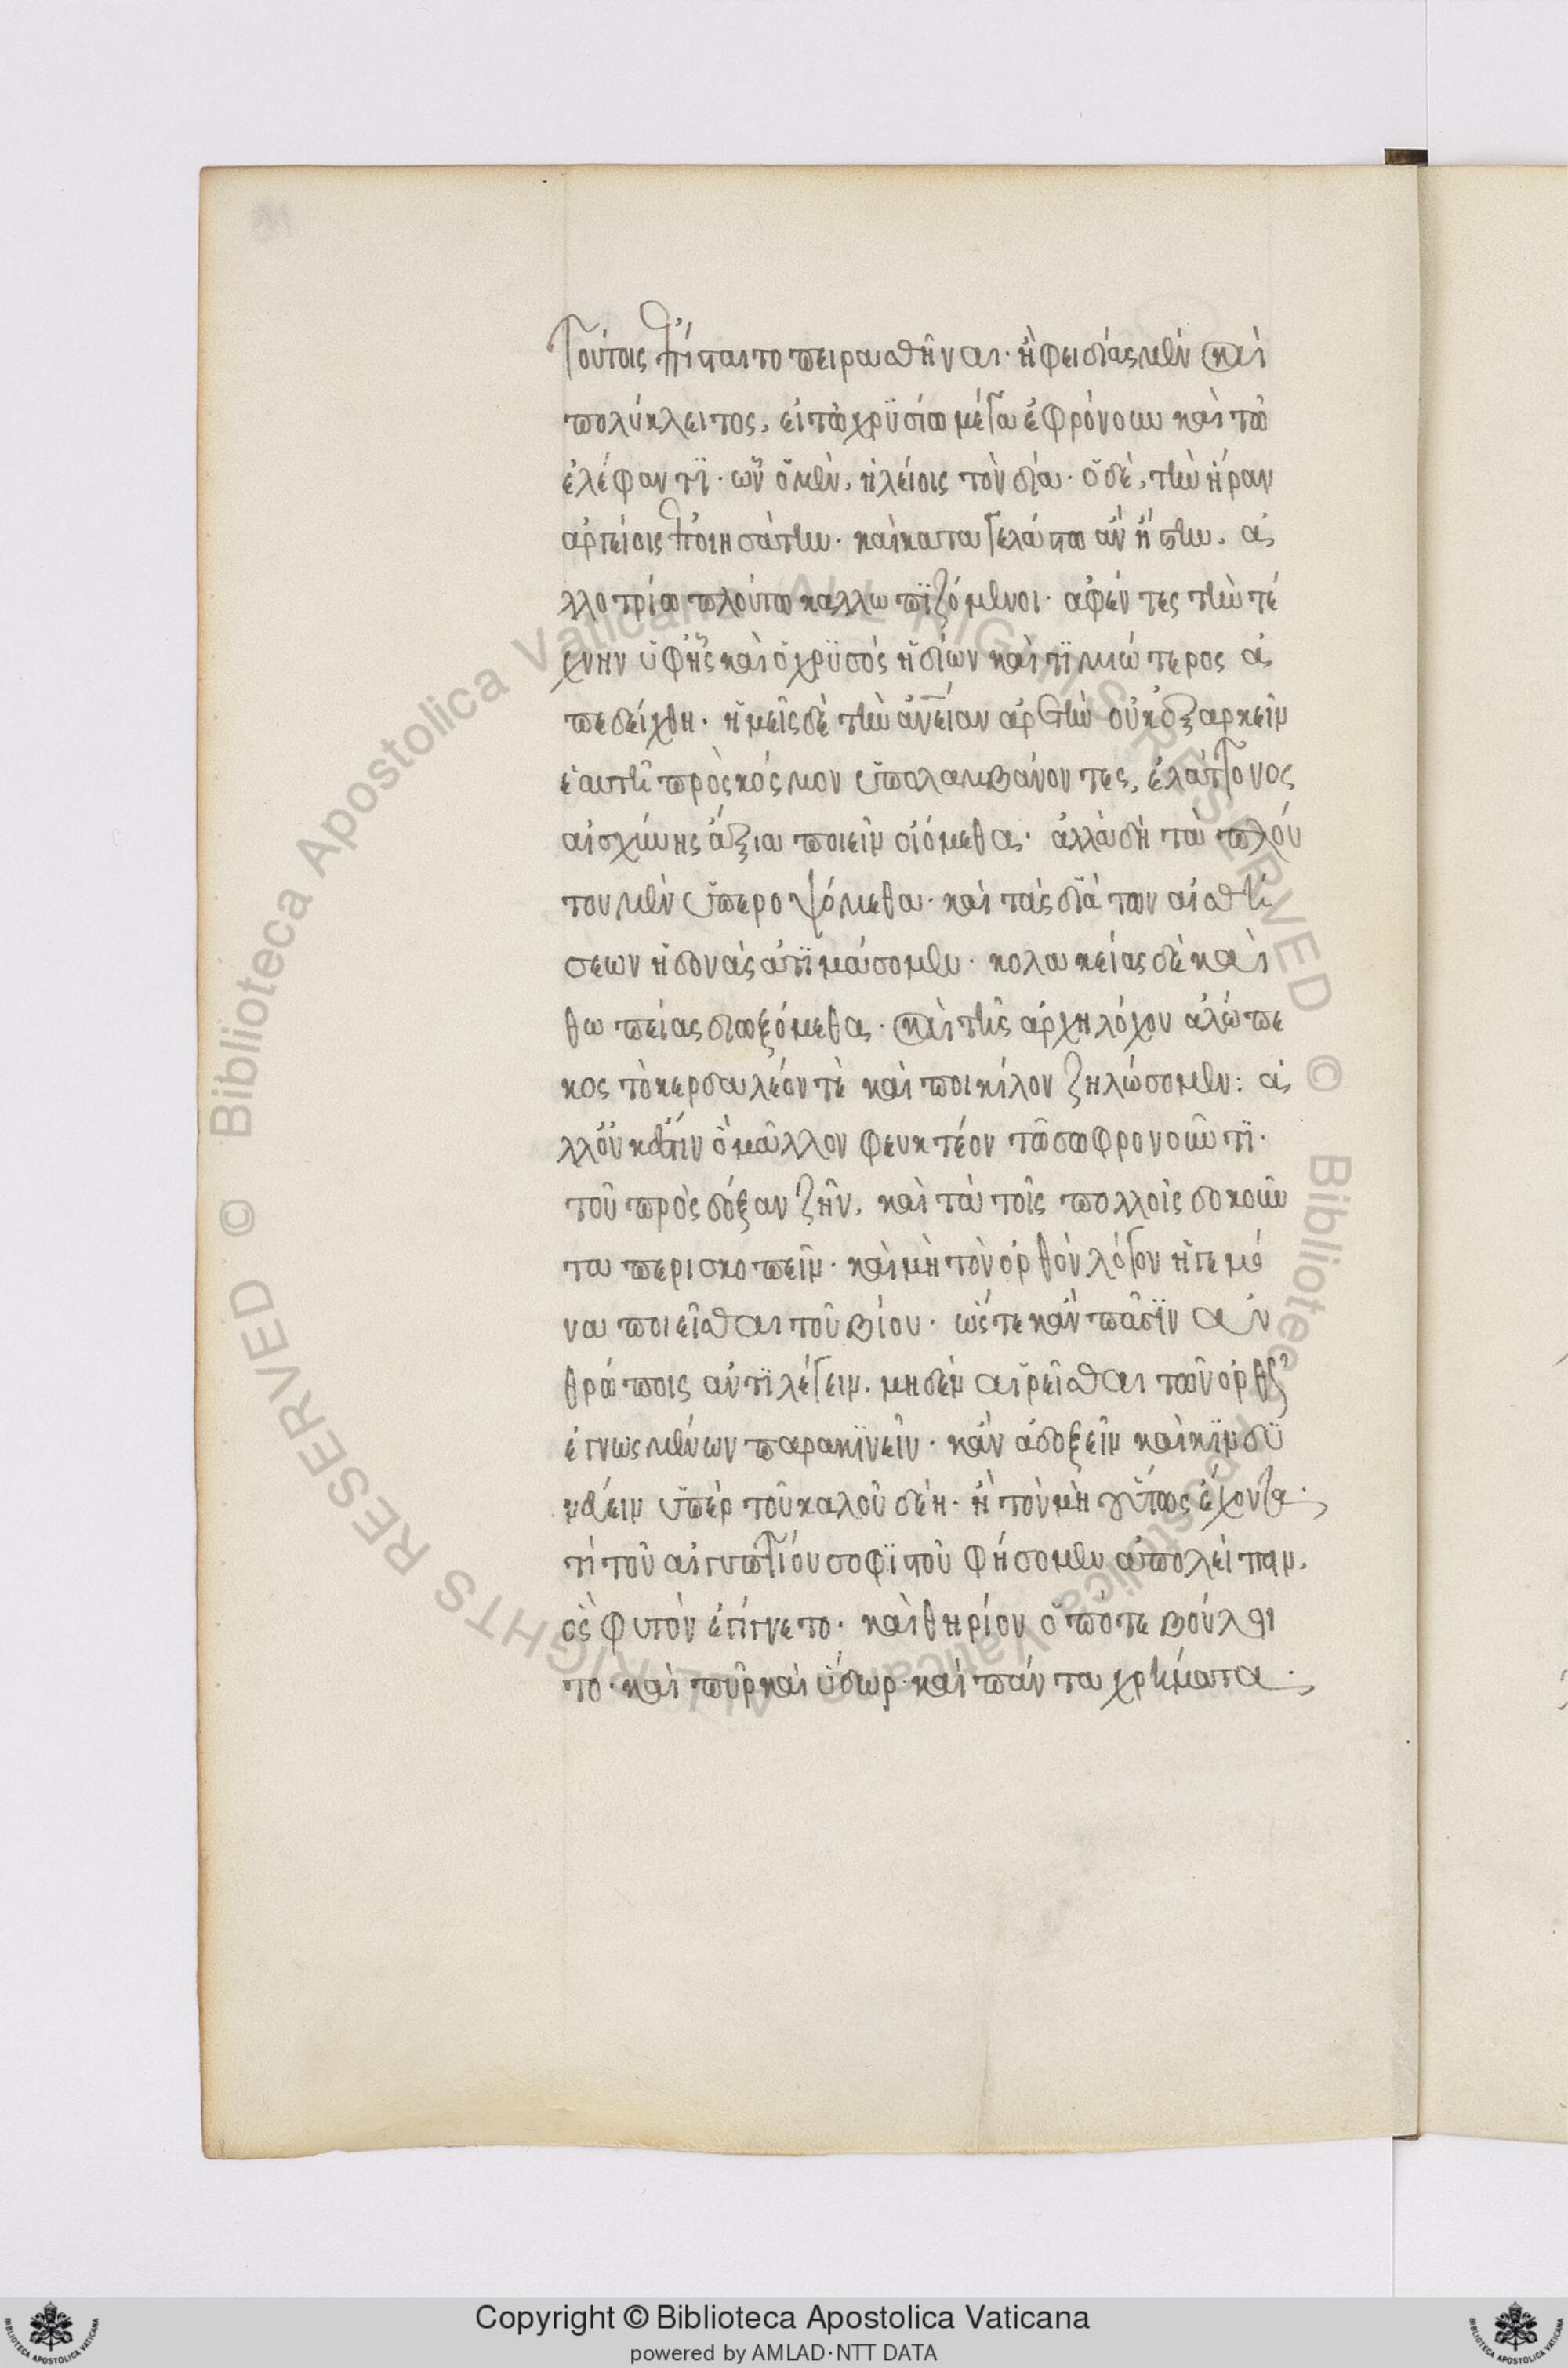 τούτοις ἐπίσταιτο πειραθῆναι· ἢ φειδίας μὲν καὶ
πολύκλειτος, εἰ τῶ χρϋσίω μέγα ἐφρόνουν καὶ τῶ
ἐλέφαντϊ· ὧν ὁ μὲν, ἠλείοις τὸν δία· ὁ δὲ, τὴν ἥραν
ἀργείοις ἐποιησάτην· καὶ καταγελάστω ἂν ἤστην, ἀ
λλοτρίω πλούτω καλλωπϊζόμενοι· ἀφέντες τὴν τέ
χνην ὑφῆς καὶ ὁ χρϋσὸς ἡδίων καὶ τϊμιώτερος ἀ
πεδείχθη· ἡμεῖς δὲ τὴν ἀνείαν ἀρετὴν οὐκ ἐξαρκεῖν
ἑαυτῆ πρὸς κόσμον ὑπολαμβάνοντες, ἐλάττονος
αἰσχύνης ἄξια ποιεῖν οἰόμεθα· ἀλλὰ δὴ τὰ πλού
του μὲν ὑπεροψόμεθα· καὶ τὰς διὰ των αἰσθή
σεων ἡδονὰς ἀτϊμάσομεν· κολακείας δὲ καὶ
θωπείας διωξόμεθα· καὶ τῆς ἀρχηλόχου ἀλώπε
κος τὸ κερδαλέον τὲ καὶ ποικίλον ζηλώσομεν: ἀ
λλ' οὐκ ἔστιν ὁ μᾶλλον φευκτέον τῶ σωφρονοῦντϊ·
τοῦ πρὸς δόξαν ζῆν, καὶ τὰ τοῖς πολλοῖς δοκοῦν
τα περισκοπεῖν· καὶ μὴ τὸν ὀρθὸν λόγον ἡγεμό
να ποιεῖσθαι τοῦ βίου· ὥστε κἂν πᾶσϊν ἀν
θρώποις ἀντϊλέγειν, μηδὲν αἱρεῖσθαι τῶν ὀρθῶς
ἐγνωσμένων παρακϊνεῖν· κἂν ἀδοξεῖν καὶ κϊνδϋ
νεύειν ὑπὲρ τοῦ καλοῦ δέη· ἢ τὸν μὴ οὕτως ἔχοντα·
τί τοῦ αἰγυπτίου σοφϊστοῦ φήσομεν ἀπολείπειν,
ὃς φυτὸν ἐγίγνετο· καὶ θηρίον ὁπότε βούλοι
το· καὶ πῦρ καὶ ὕδωρ· καὶ πάντα χρήματα·
Copyright © Biblioteca Apostolica Vaticana
powered by AMLAD·NTT DATA